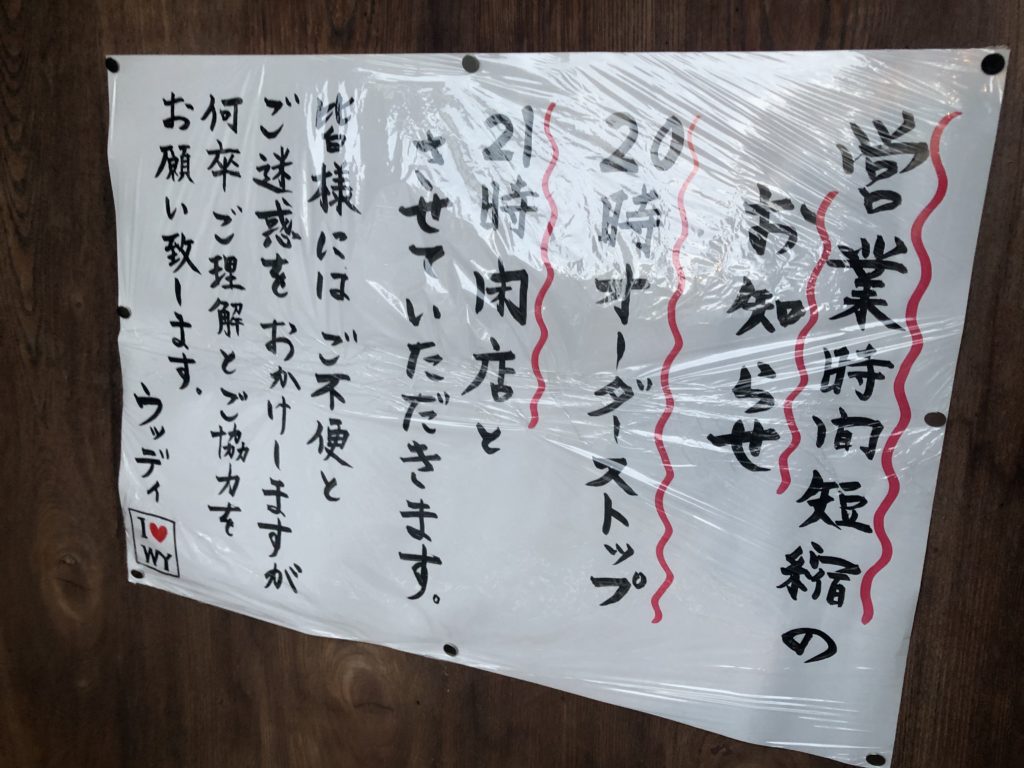 営業時間短縮の
お知らせ
20時オーダーストップ
21時 閉店と
させていただきます。
皆様には ご不便と
ご迷惑を おかけしますが
何卒ご理解とご協力を
お願い致します。
ウッディ
I♥
WY